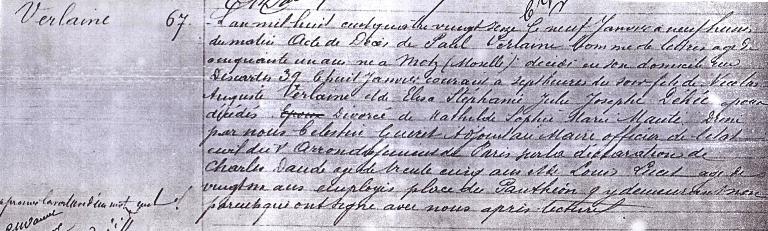 Verlaine 67.
L'an mil huit cent quatre vingt seize le neuf Janvier à neuf heures
du matin Acte de Décès de Paul Verlaine homme de lettres agé de
cinquante un ans né à Metz (Moselle) décédé en son domicile rue
Descartes 39 le huit Janvier courant à sept heures du soir fils de Nicolas
Auguste Verlaine et de Elisa Stéphanie Julie Josèphe Dehée époux
décédés. Epoux Divorcé de Mathilde Sophie Marie Mauté Dressé
par nous Célestin Adjoint au Maire officier de l'état
civil du V Arrondissement de Paris sur la déclaration de
Charles agé de trente cinq ans et de Louis agé de
vingt ans employés place du Panthéon 9 y demeurant non
parents qui ont signé avec nous après lecture
approuvé la rature d'un mot nul